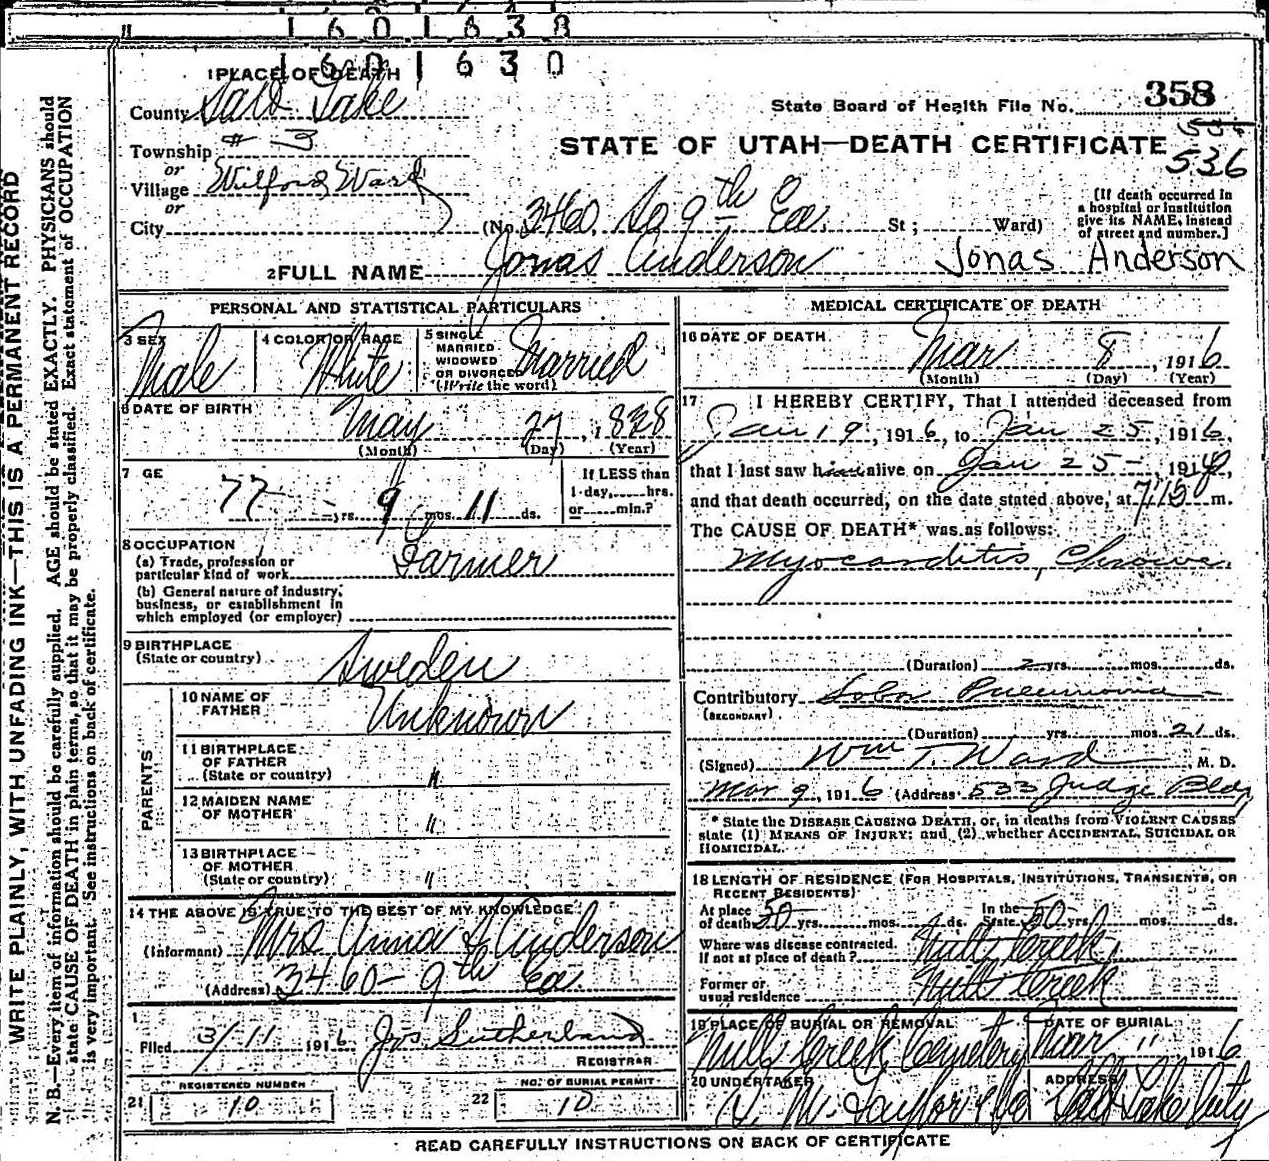 1 6 0 1 6 3 8
1 6 0 1 6 3 0
1 PLACE OF DEATH
County Salt Lake
State Board of Health File No. 358
Township # 3
STATE OF UTAH—DEATH CERTIFICATE
536
or
Village Wilford Ward
or
City
(No. 3460 So 9th Ea. St ; Ward)
[If death occurred in
a hospital or institution
give its NAME, instead
of street and number.]
2 FULL NAME Jonas Anderson Jonas Anderson
PERSONAL AND STATISTICAL PARTICULARS
3 SEX Male
4 COLOR OR RACE White
5 SINGLE
MARRIED
WIDOWED
OR DIVORCED
(Write the word)
Married
6 DATE OF BIRTH
May 27, 1828
(Month) (Day) (Year)
7 GE
77 yrs. 9 mos. 11 ds.
If LESS than
1 day, hrs.
or min.?
8 OCCUPATION
(a) Trade, profession or
particular kind of work Farmer
(b) General nature of industry,
business, or establishment in
which employed (or employer)
9 BIRTHPLACE
(State or country) Sweden
PARENTS
10 NAME OF
FATHER Unknown
11 BIRTHPLACE
OF FATHER
(State or country) "
12 MAIDEN NAME
OF MOTHER "
13 BIRTHPLACE
OF MOTHER
(State or country) "
14 THE ABOVE IS TRUE TO THE BEST OF MY KNOWLEDGE
(Informant) Mrs Anna S. Anderson
(Address) 3460 - 9th Ea.
Filed 3/11 1916 Jos Sutherland
REGISTRAR
21 REGISTERED NUMBER
10
22 NO. OF BURIAL PERMIT
10
MEDICAL CERTIFICATE OF DEATH
16 DATE OF DEATH
Mar 8, 1916
(Month) (Day) (Year)
17 I HEREBY CERTIFY, That I attended deceased from
Jan 19, 1916, to Jan 25, 1916,
that I last saw him alive on Jan 25 1916,
and that death occurred, on the date stated above, at 7/15 m.
The CAUSE OF DEATH* was as follows:
Myocarditis, Chronic
(Duration) 2 yrs. mos. ds.
Contributory Lobar Pneumonia
(SECONDARY)
(Duration) yrs. mos. 21 ds.
(Signed) Wm T. Ward, M. D.
Mar 9, 1916 (Address 533 Judge Bldg
* State the DISEASE CAUSING DEATH, or, in deaths from VIOLENT CAUSES
state (1) MEANS OF INJURY; and (2) whether ACCIDENTAL, SUICIDAL OR
HOMICIDAL.
18 LENGTH OF RESIDENCE (FOR HOSPITALS, INSTITUTIONS, TRANSIENTS, OR
RECENT RESIDENTS)
At place
of death 50 yrs. mos. ds. In the
State 50 yrs. mos. ds.
Where was disease contracted,
If not at place of death? Mill Creek,
Former or
usual residence Mill Creek
19 PLACE OF BURIAL OR REMOVAL
Mill Creek Cemetery
DATE OF BURIAL
Mar 11 1916
20 UNDERTAKER
S. M. Taylor & Co
ADDRESS
Salt Lake City
READ CAREFULLY INSTRUCTIONS ON BACK OF CERTIFICATE
WRITE PLAINLY, WITH UNFADING INK—THIS IS A PERMANENT RECORD
N. B.—Every item of information should be carefully supplied. AGE should be stated EXACTLY. PHYSICIANS should
state CAUSE OF DEATH in plain terms, so that it may be properly classified. Exact statement of OCCUPATION
is very important. See instructions on back of certificate.